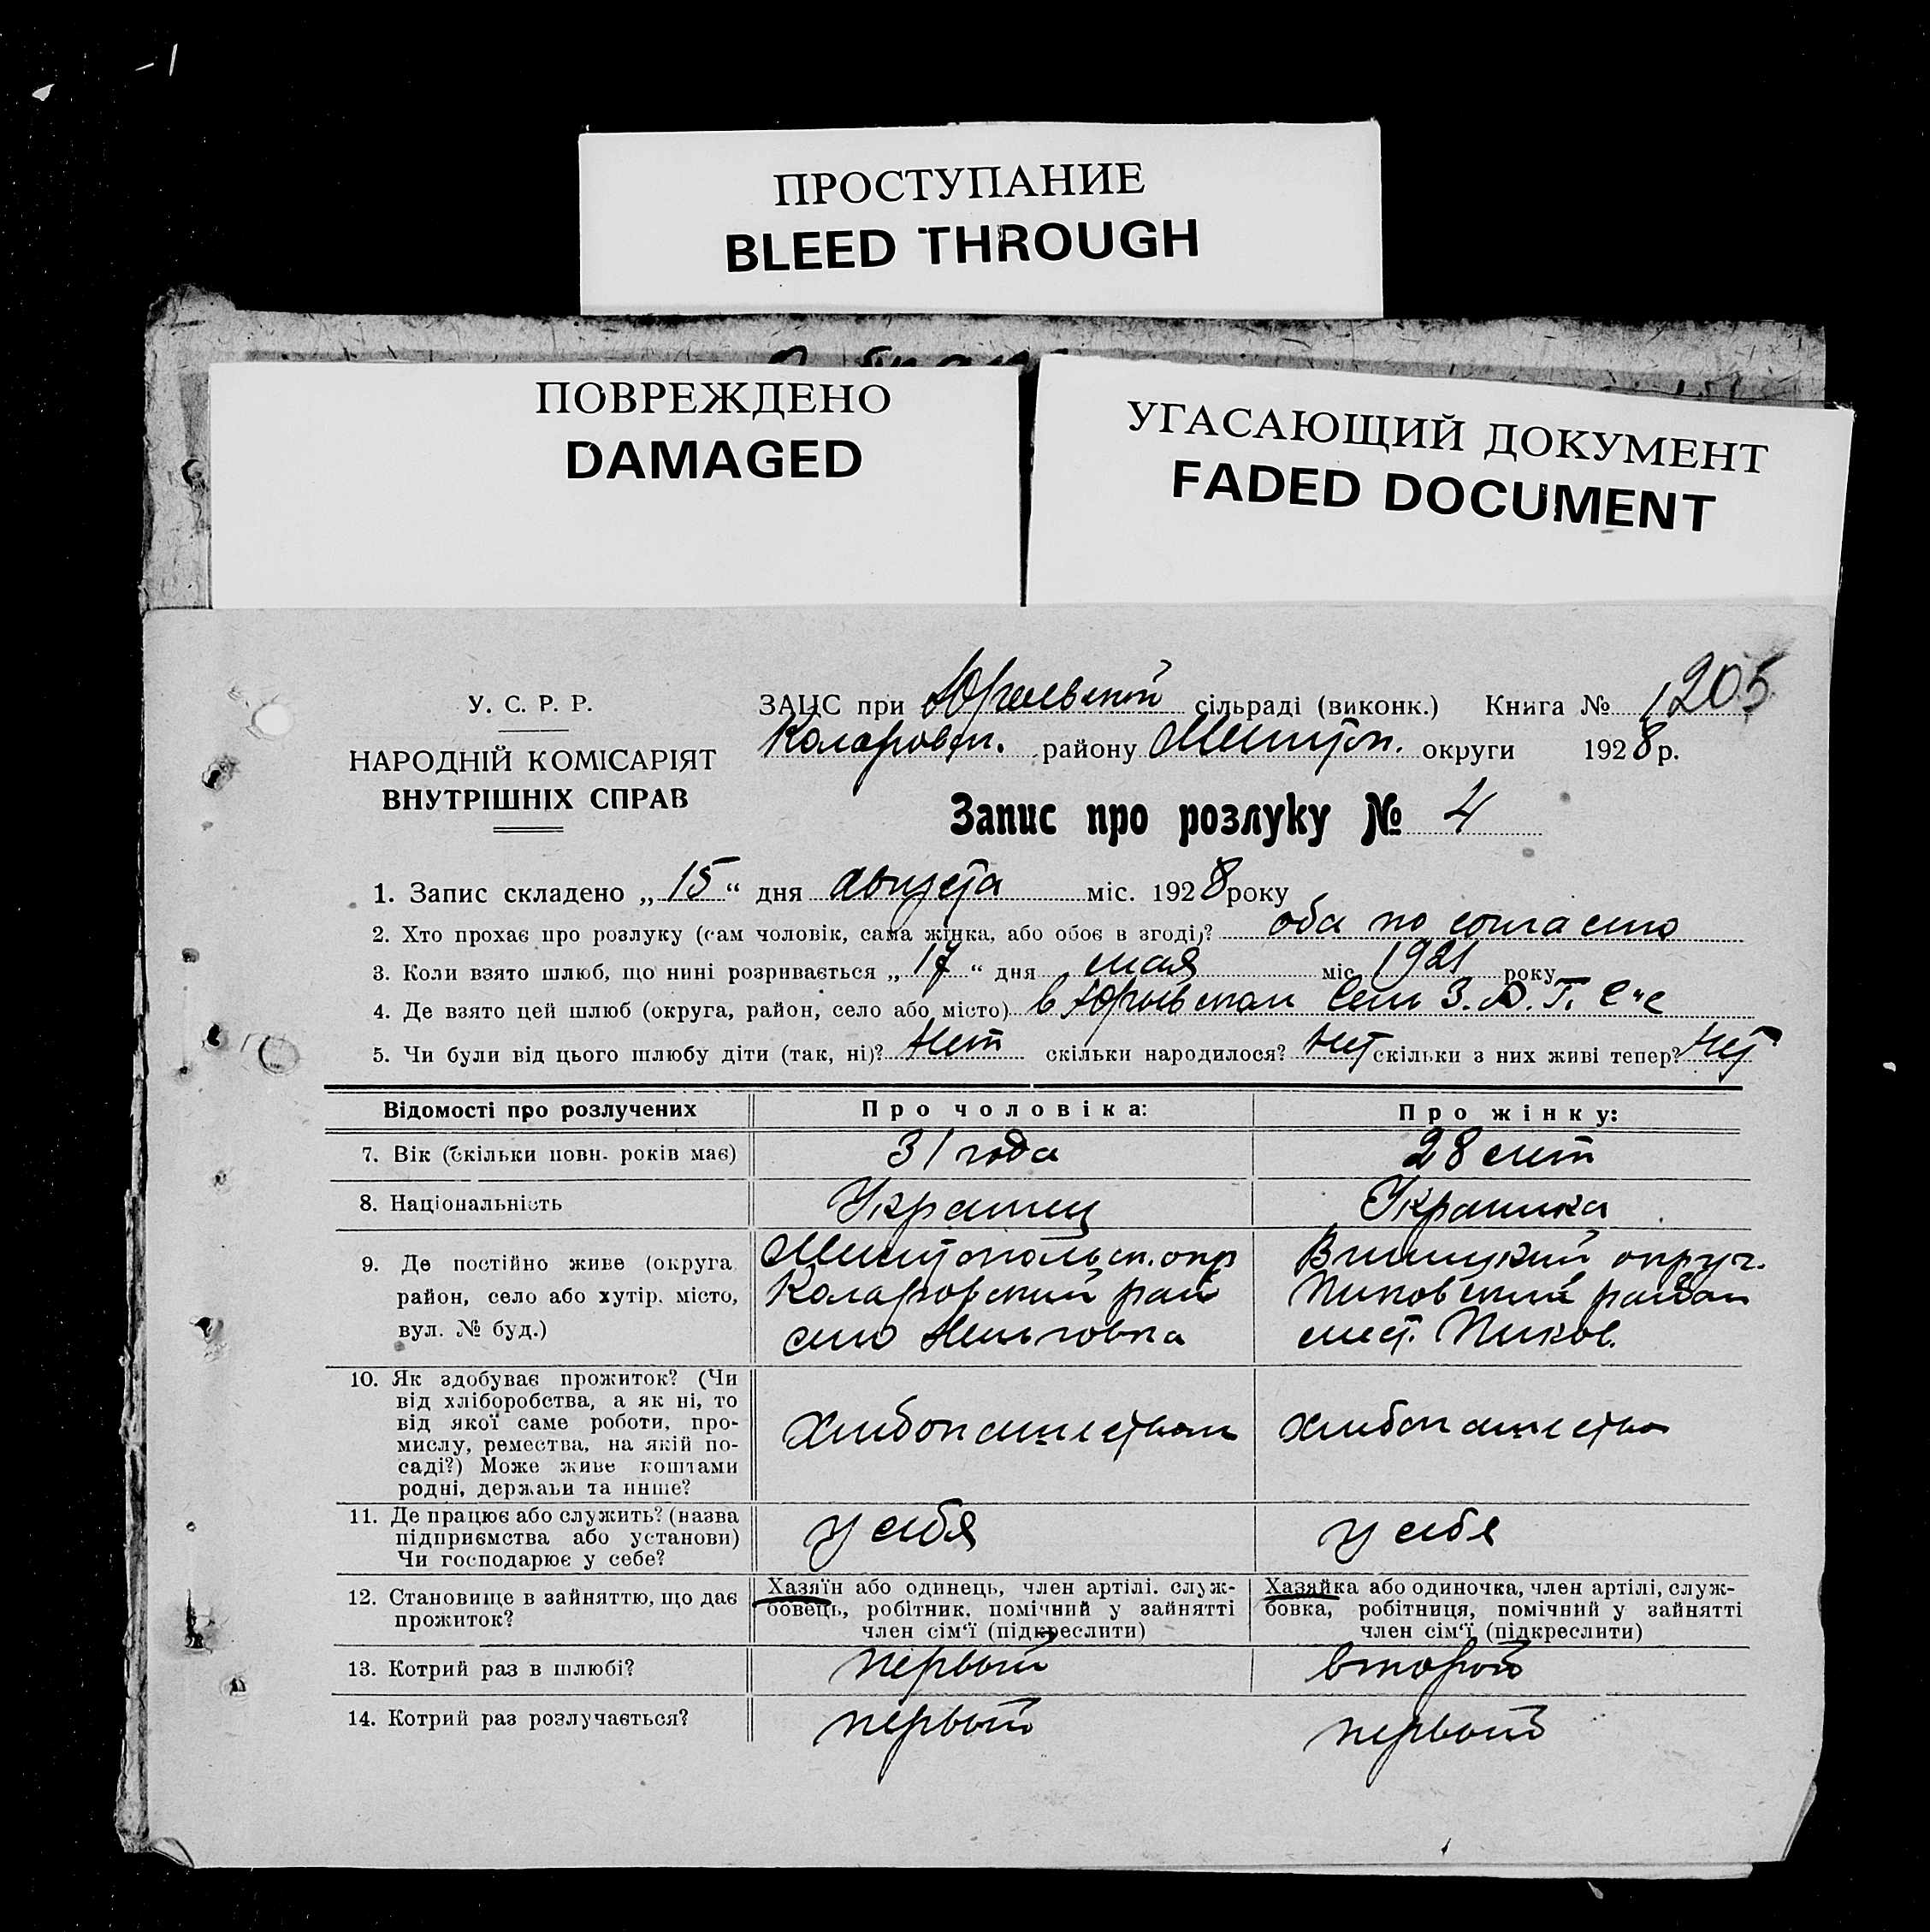 ПРОСТУПАНИЕ
BLEED THROUGH
ПОВРЕЖДЕНО
DAMAGED
УГАСАЮЩИЙ ДОКУМЕНТ
FADED DOCUMENT
У. С. Р. Р.
НАРОДНІЙ КОМІСАРІЯТ
ВНУТРІШНІХ СПРАВ
ЗАЦС при Юрьевской сільраді (виконк.) Книга № 1 205
Коларовск. району Мелитоп. округи 1928 р.
Запис про розлуку № 4
1. Запис складено „15“ дня августа міс. 1928 року
2. Хто прохає про розлуку (сам чоловік, сама жінка, або обоє в згоді)? оба по согласию
3. Коли взято шлюб, що нині розривається „17“ дня мая міс 1921 року
4. Де взято цей шлюб (округа, район, село або місто) в Юрьевском З. А. Г. С-е
5. Чи були від цього шлюбу діти (так, ні)? Нет скільки народилося? Нет скільки з них живі тепер? Нет
Відомості про розлучених
Про чоловіка:
Про жінку:
7. Вік (скільки повн. років має)
31 года
28 лет
8. Національність
Украинец
Украинка
9. Де постійно живе (округа,
район, село або хутір, місто,
вул. № буд.)
Мелитопольск. окр
Коларовский рай
село
Винницкий округ.
Пиковский район
мест. Пиков.
10. Як здобуває прожиток? (Чи
від хліборобства, а як ні, то
від якої саме роботи, про-
мислу, ремества, на якій по-
саді?) Може живе коштами
родні, держави та инше?
хлебопашеством
хлебопашество
11. Де працює або служить? (назва
підприємства або установи)
Чи господарює у себе?
у себя
у себя
12. Становище в зайняттю, що дає
прожиток?
Хазяїн або одинець, член артілі. служ-
бовець, робітник, помічний у зайнятті
член сім'ї (підкреслити)
Хазяйка або одиночка, член артілі, служ-
бовка, робітниця, помічний у зайнятті
член сім'ї (підкреслити)
13. Котрий раз в шлюбі?
первый
второй
14. Котрий раз розлучається?
первый
первый